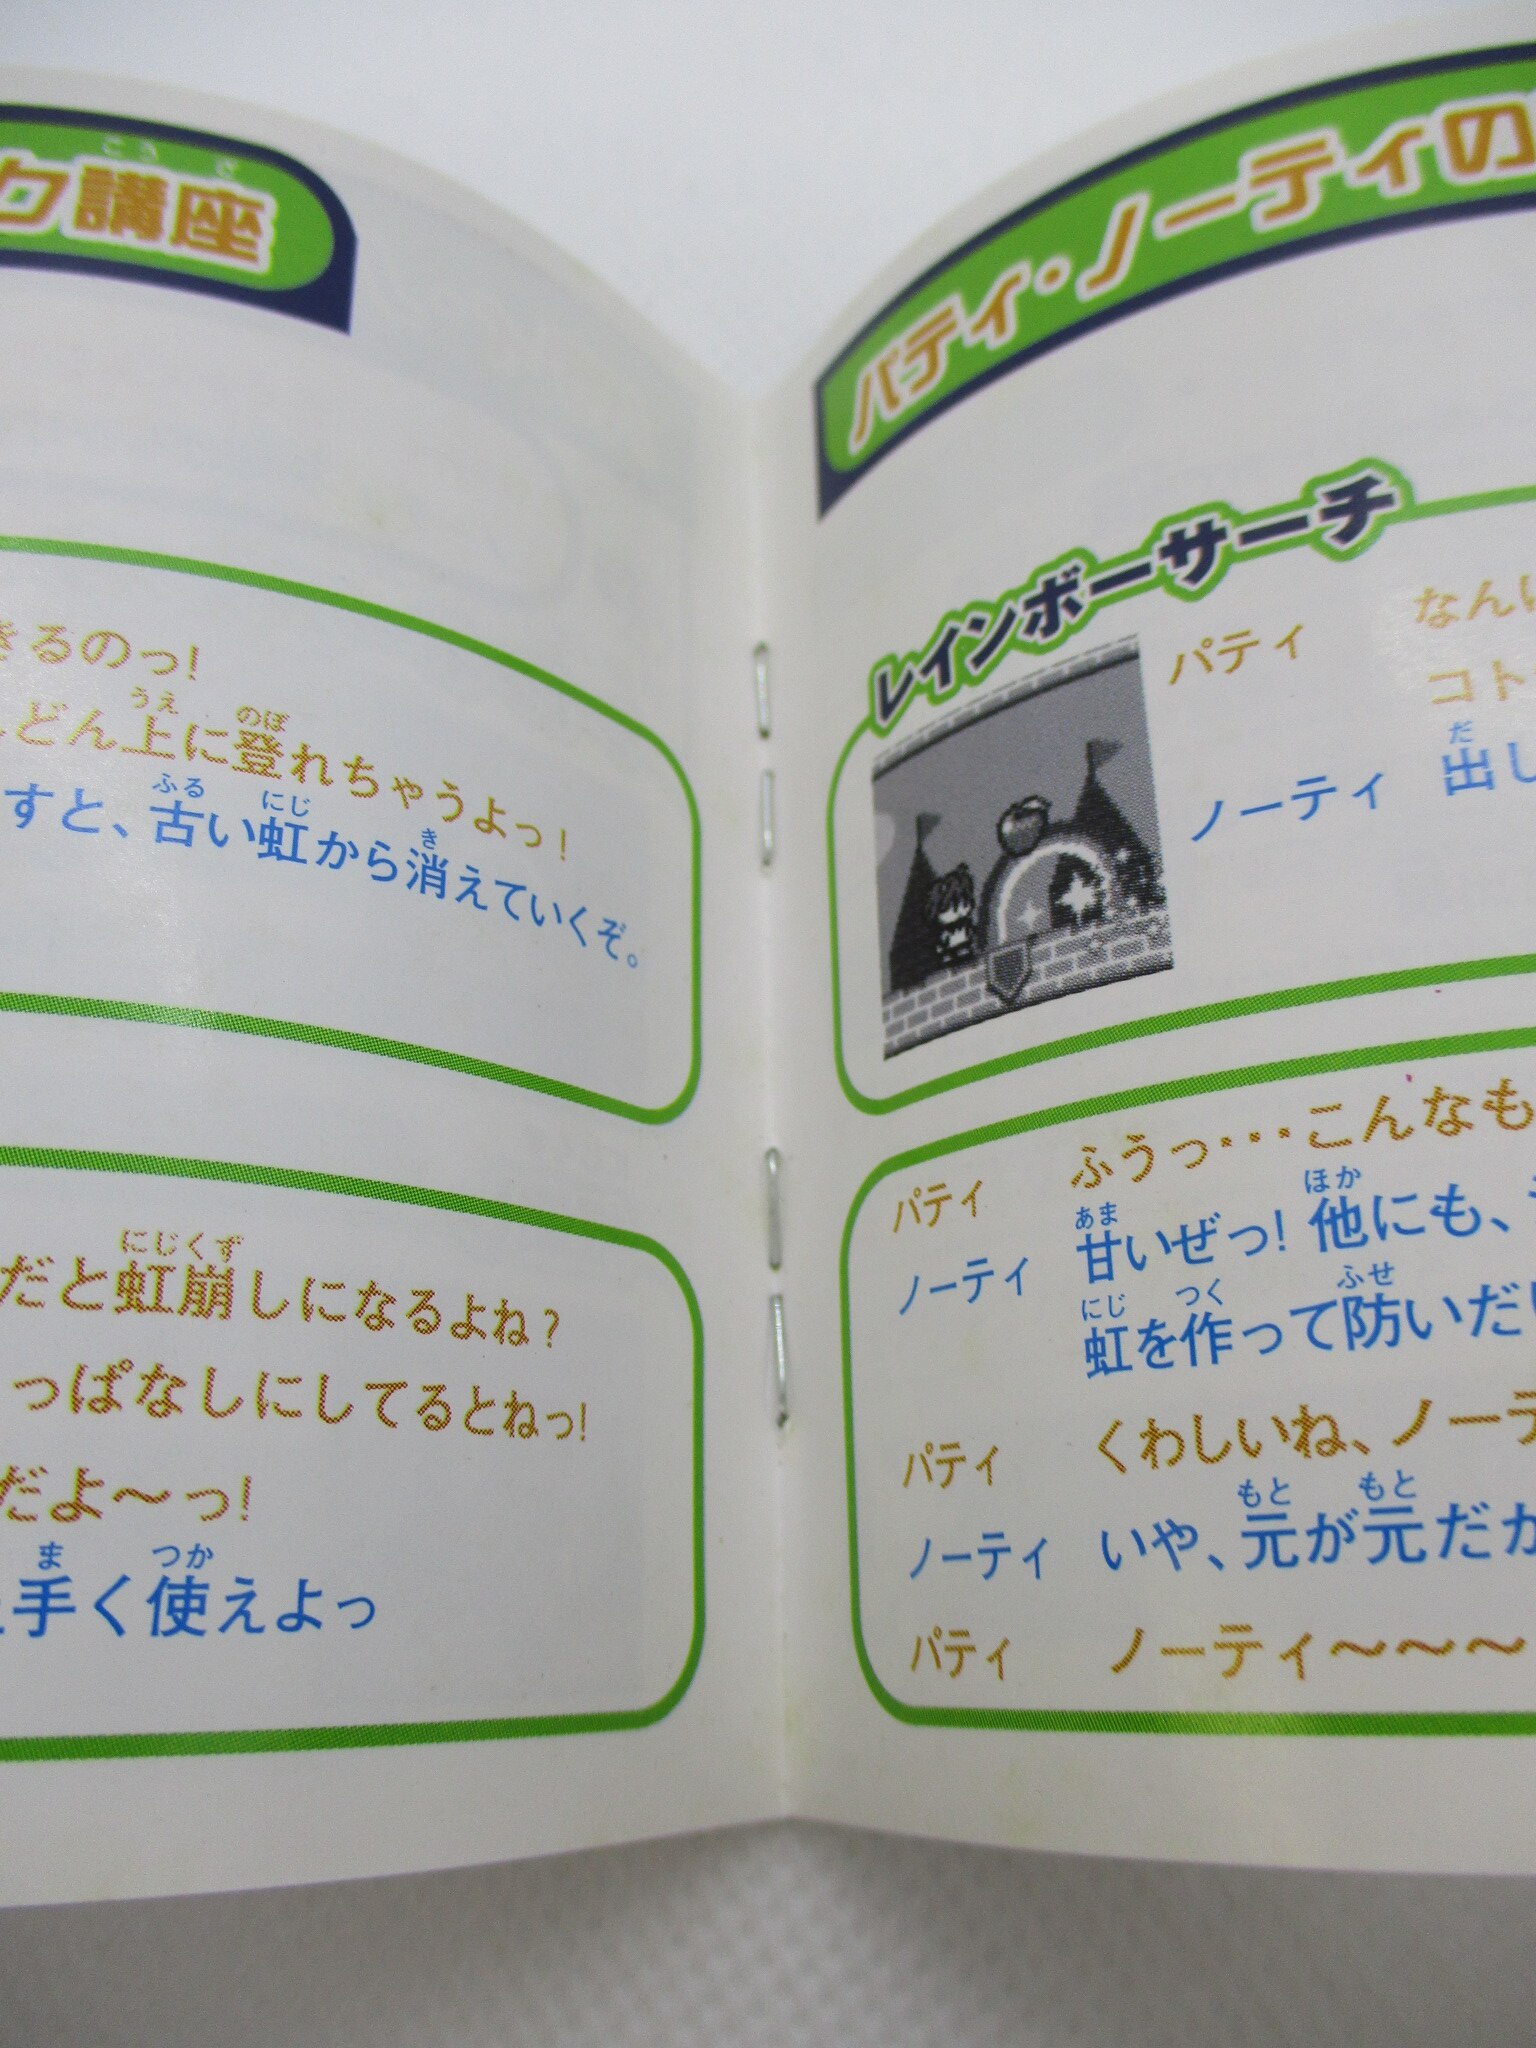 ク講座
きるのっ!
どん上に登れちゃうよっ!
すと、古い虹から消えていくぞ。
だと虹崩しになるよね?
っぱなしにしてるとねっ!
だよ〜っ!
手く使えよっ
パティ・ノーティの
レインボーサーチ
パティ なんい
コト
ノーティ 出し
パティ ふうっ・・・こんなも
ノーティ 甘いぜっ! 他にも、
虹を作って防いだ
パティ くわしいね、ノーテ
ノーティ いや、元が元だか
パティ ノーティ〜〜〜